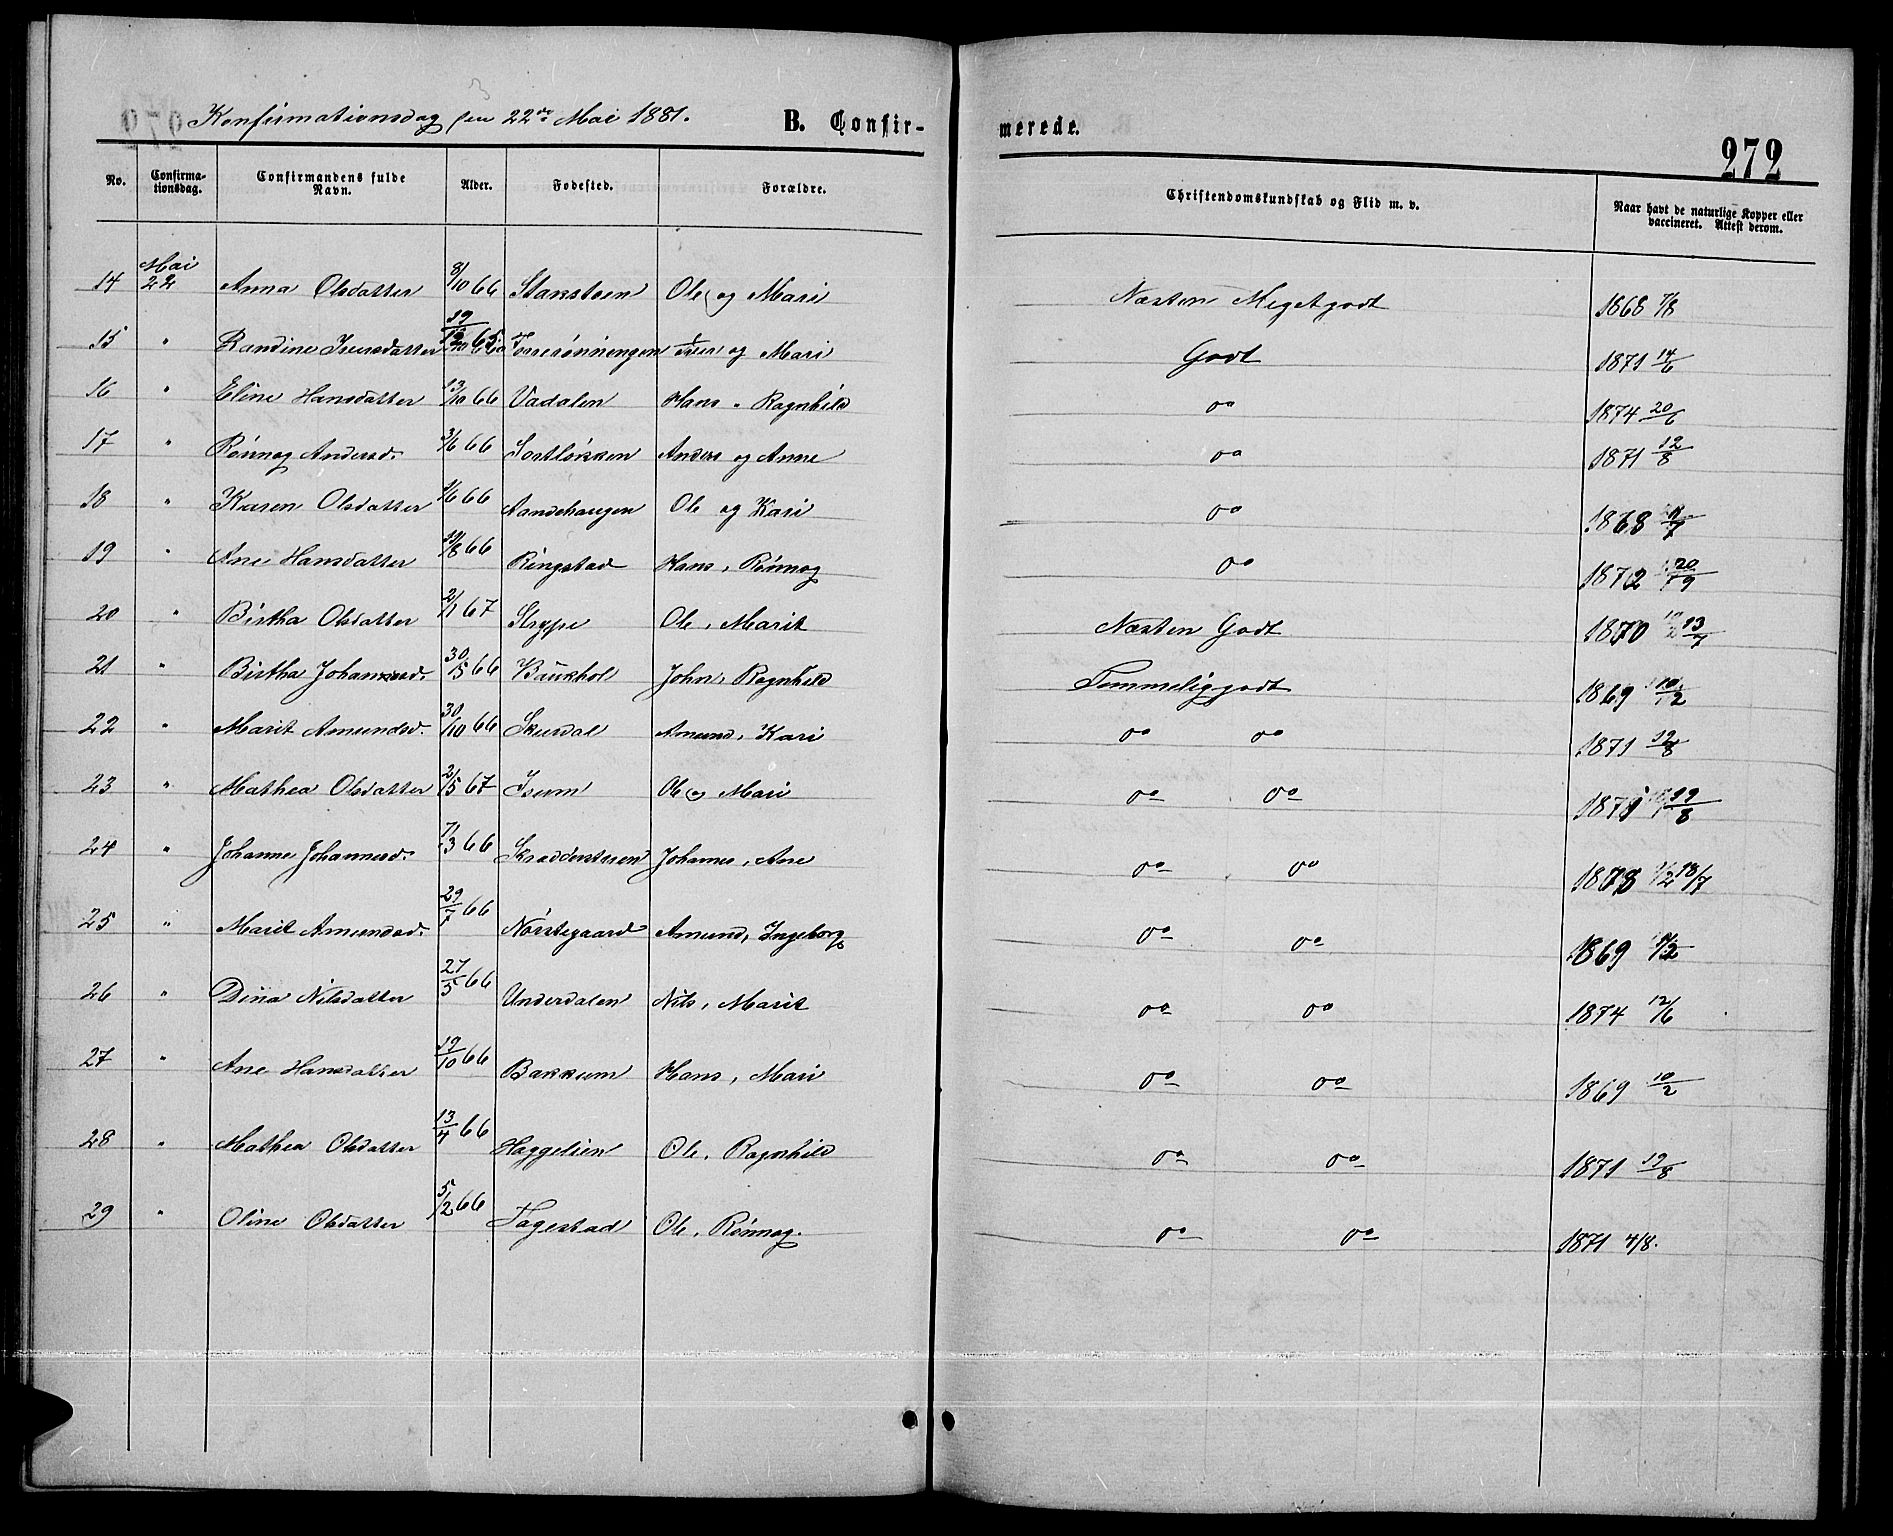 Konfirmationsdag den 22de Mai 1881.
B. Confir-
merede.
272
No. Confirma-tionsdag. Confirmandens fulde Navn. Alder. Fødested. Forældre. Christendomskundskab og Flid m. v. Naar havt de naturlige Kopper eller vaccineret. Attest derom.
14 Mai 22 Anna Olsdatter 8/10 66 Ole og Mari Næsten Megetgodt 1868 7/8
15 " Randine Iversdatter Iver og Mari Godt 1871 14/6
16 " Eline Hansdatter 13/10 66 Vadalen Hans " Ragnhild do 1874 20/6
17 " Rønnog Andersd. 3/6 66 Sortløkken Anders og Anne do 1871 12/8
18 " Karen Olsdatter 1/6 66 Aandehaugen Ole og Kari do 1868
19 " Ane Hansdatter Ringstad Hans, Rønnog do 1872 20/9
20 " Birtha Olsdatter 2/1 67 Strype Ole, Marit Næsten Godt 1870 13/7
21 " Birtha Johannesd. 30/5 66 Baukhol John, Ragnhild Temmeliggodt 1869 10/2
22 " Marit Amundsd. 30/10 66 Skurdal Amund, Kari do do 1871 12/8
23 " Mathea Olsdatter 2/5 67 Isum Ole og Mari do do 1871
24 " Johanne Johannesd. 7/3 66 Skreddersveen Johannes, Ane do do
25 " Marit Amundsd. 29/7 66 Nørstegaard Amund, Ingeborg do do 1869 10/2
26 " Dina Nilsdatter 27/5 66 Underdalen Nils, Marit do do 1874 12/6
27 " Ane Hansdatter 19/10 66 Bakkum Hans, Mari do do 1869 10/2
28 " Mathea Olsdatter 13/4 66 Haggelien Ole, Ragnhild do do 1871 12/8
29 " Oline Olsdatter 5/12 66 Fagestad Ole, Rønnog. do do 1871 4/8.